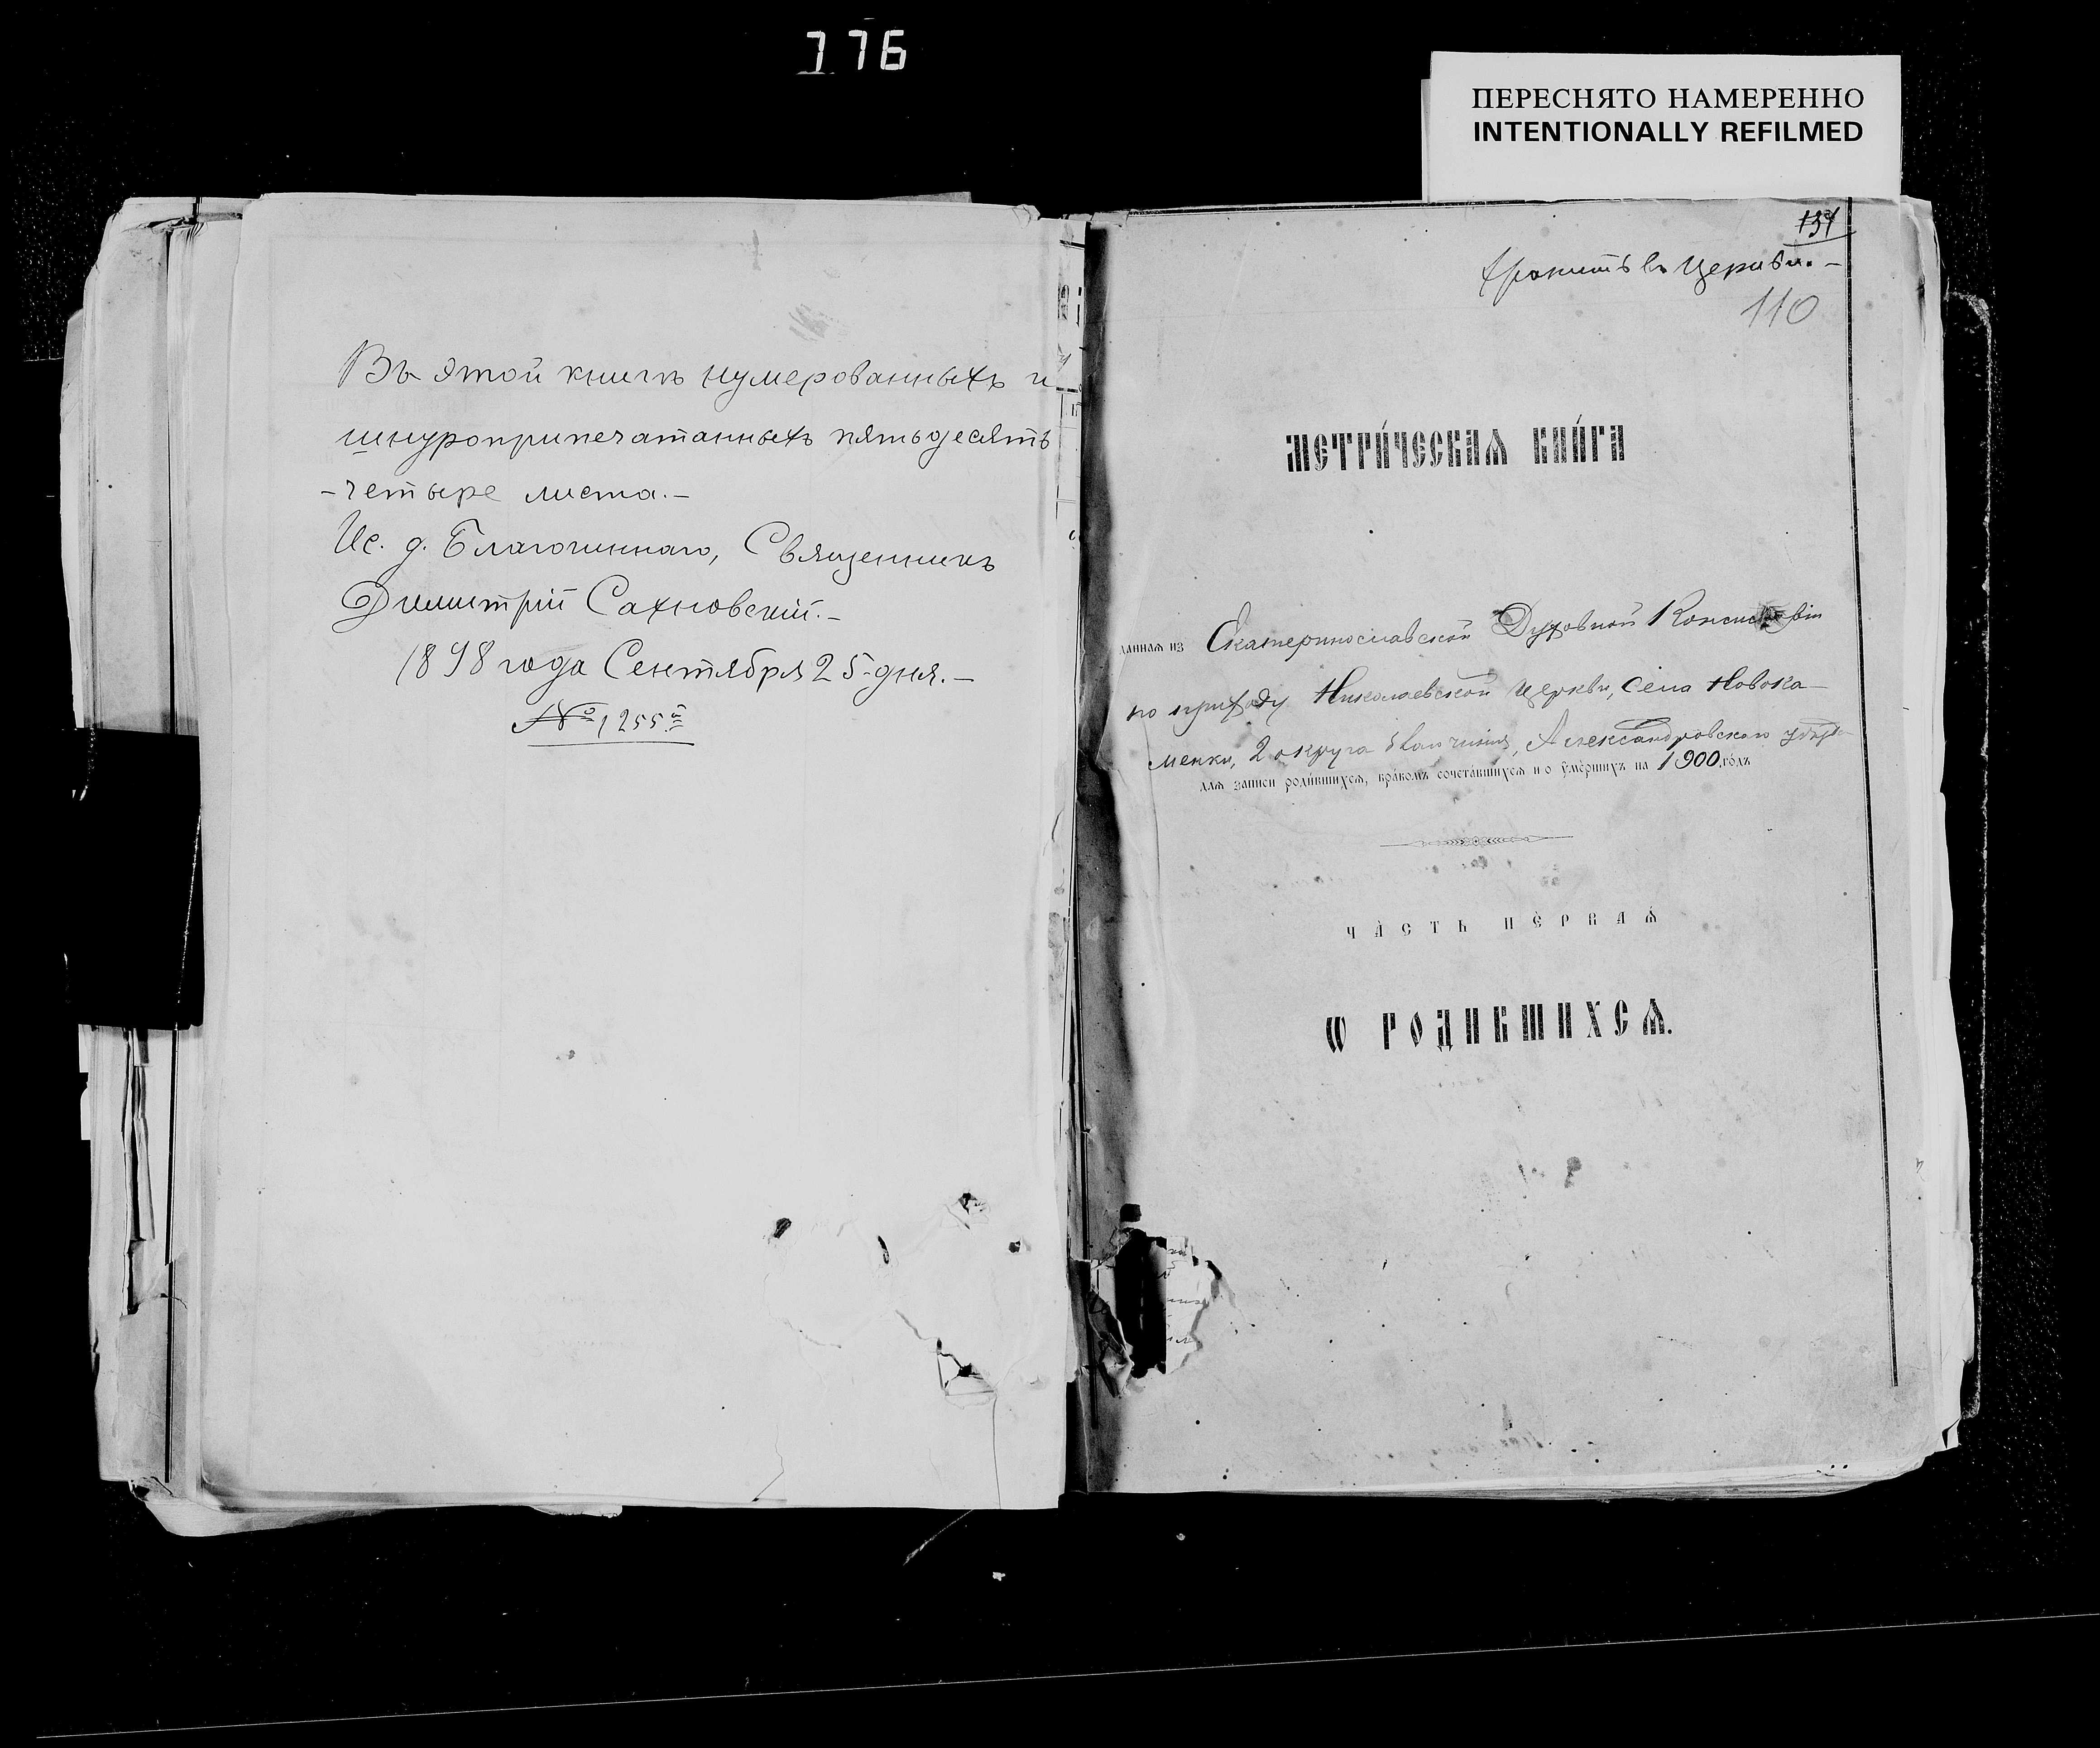 176
ПЕРЕСНЯТО НАМЕРЕННО
INTENTIONALLY REFILMED
Въ этой книгѣ нумерованныхъ и
шнуроприпечатанныхъ пятьдесятъ
-четыре листа.-
Ис. д. Благочиннаго, Священникъ
Димитрій Сахновскій.-
1898 года Сентября 25-дня.-
№ 1255й
хранить въ Церкви.-
110
МЕТРИ́ЧЕСКАѦ КНИ́ГА
даннаѧ из Екатеринославской Духовной Консисторіи
по приходу Николаевской церкви, села Новока-
менки, 2 округа Благочинія, Александровскаго уѣзда
длѧ записи роди́вшихсѧ, бра́комъ сочета́вшихсѧ и о у́ме́ршихъ на 1900 го́дъ
ЧА́СТЬ ПЕ́РВАѦ
Ѡ РОДИВШИХСѦ.